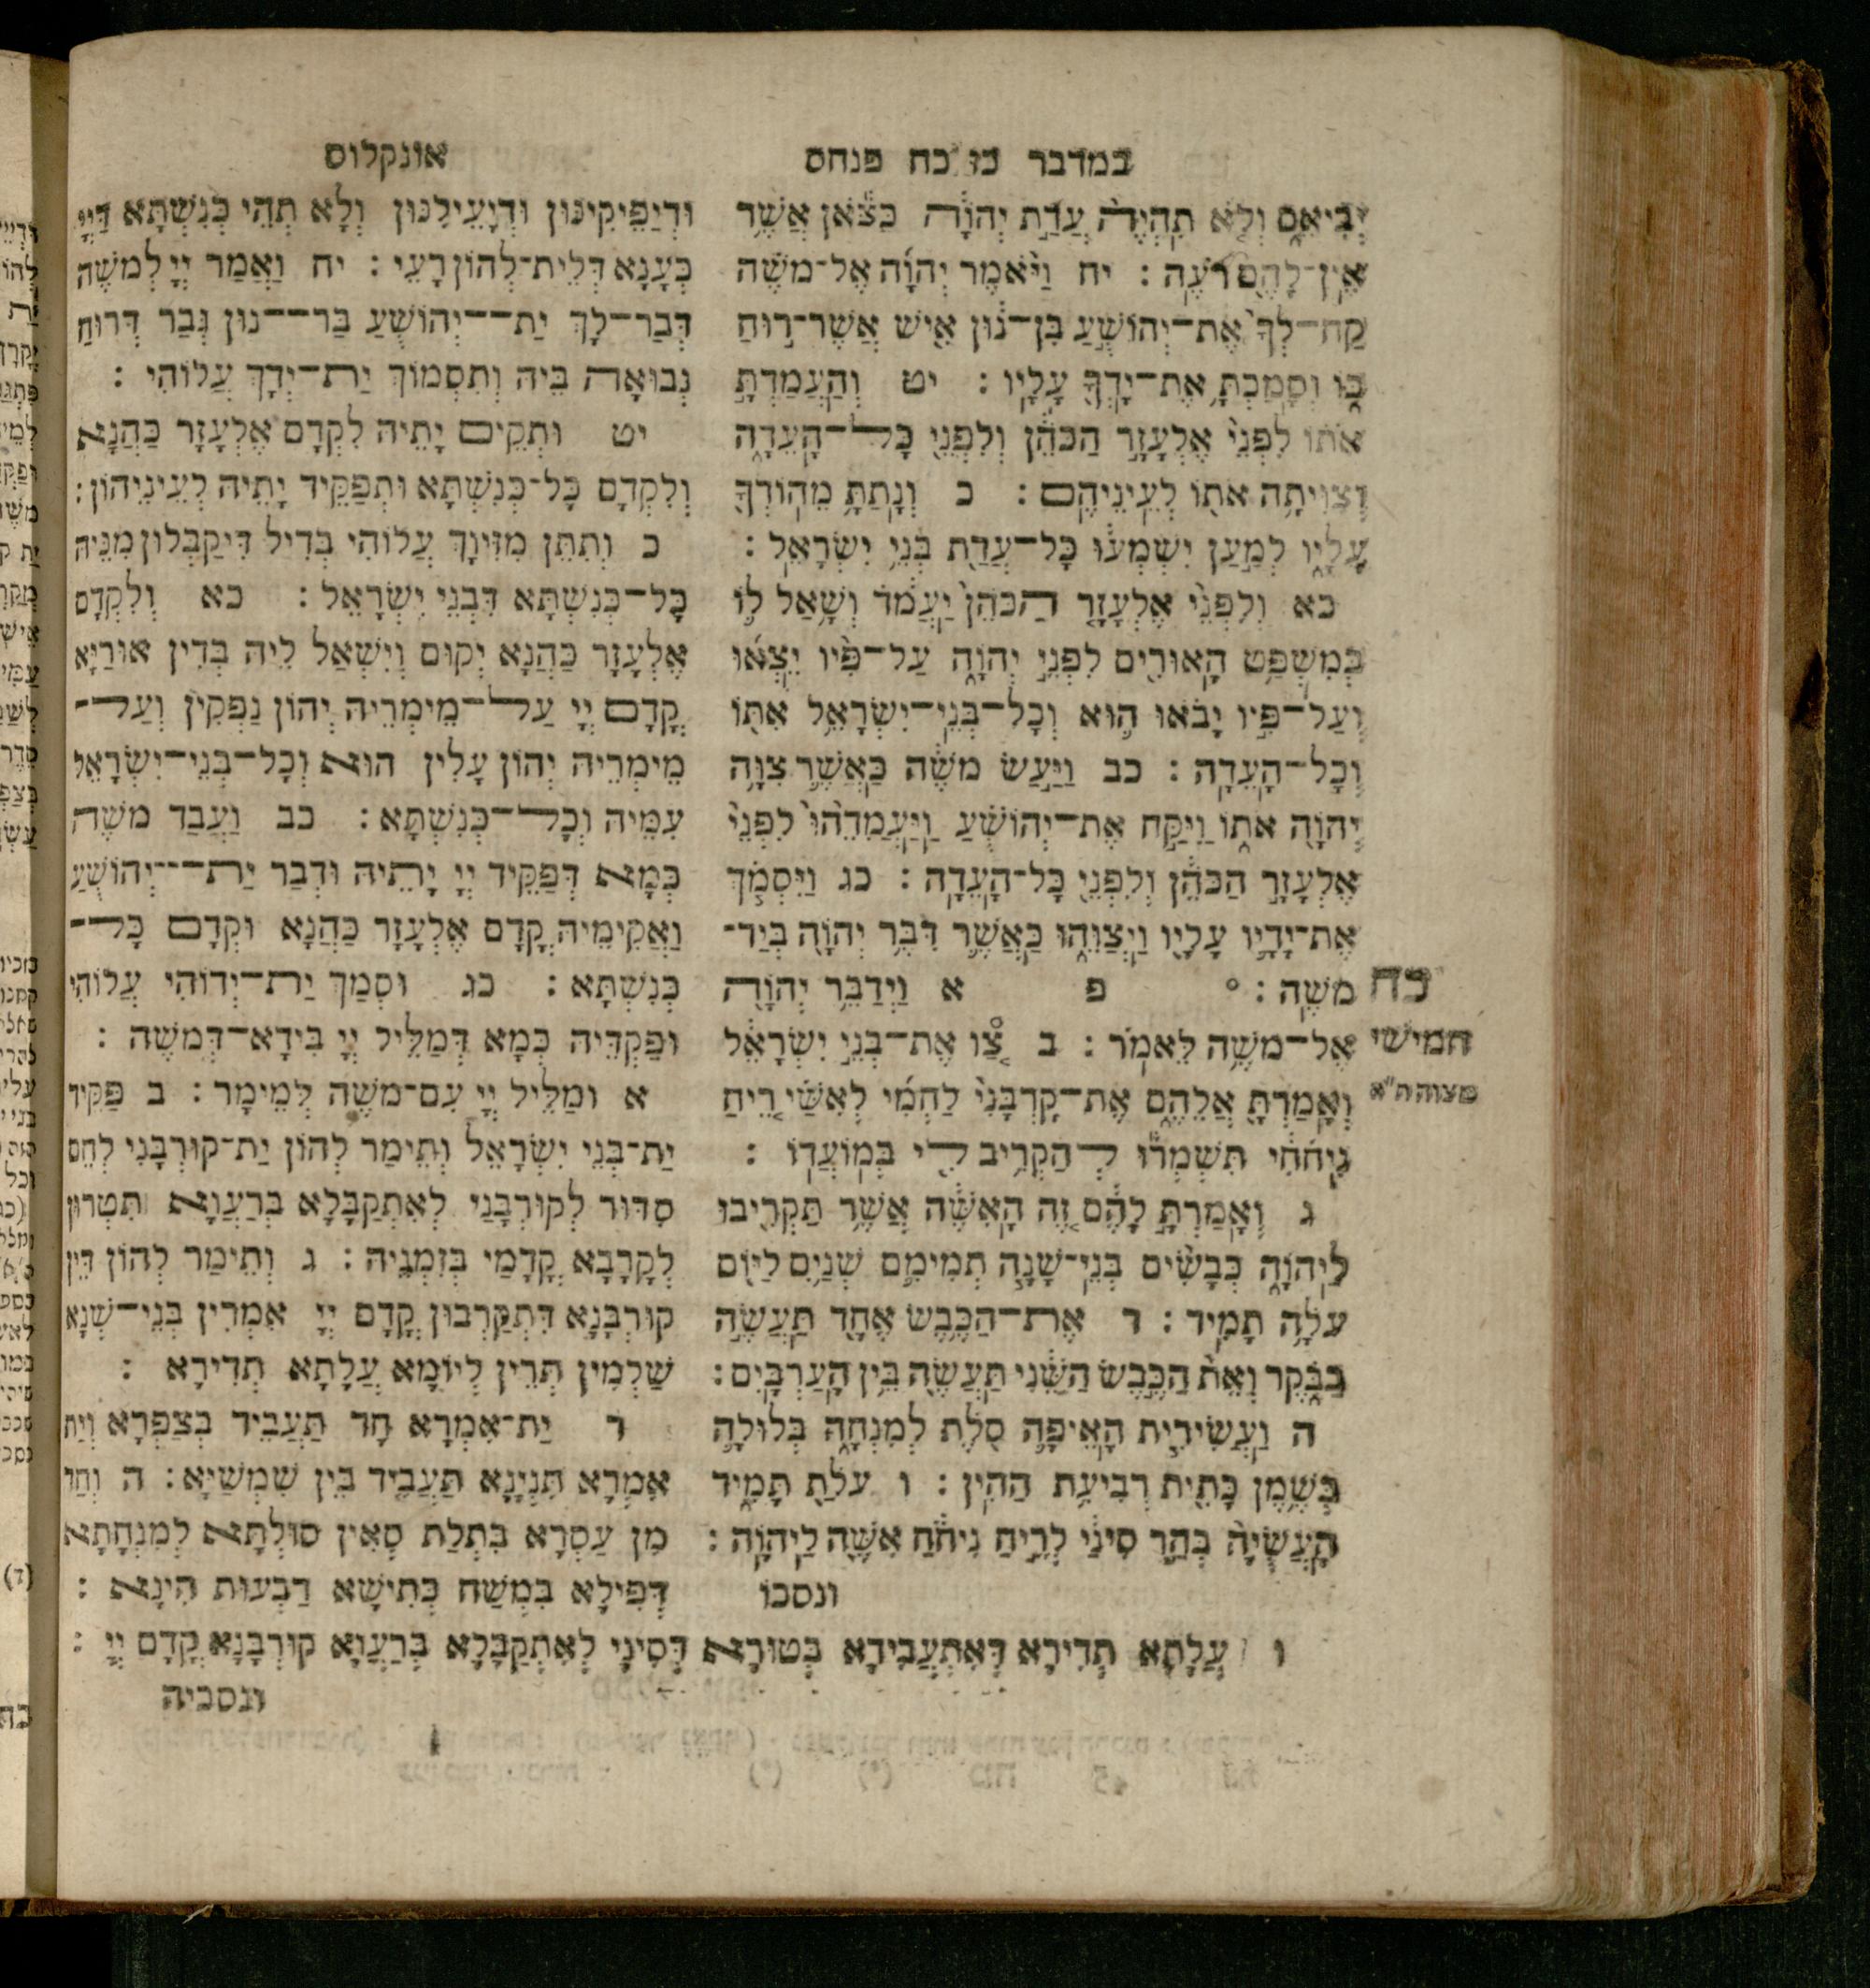 במדבר כז כח פנחס
יְבִיאֵ֑ם וְלֹ֤א תִֽהְיֶה֙ עֲדַ֣ת יְהֹוָ֔ה כַּצֹּ֕אן אֲשֶׁ֥ר
אֵֽין־לָהֶ֖ם רֹעֶֽה : יח וַיֹּ֨אמֶר יְהֹוָ֜ה אֶל־מֹשֶׁ֗ה
קַח־לְךָ֙ אֶת־יְהוֹשֻׁ֣עַ בִּן־נ֔וּן אִ֖ישׁ אֲשֶׁר־ר֣וּחַ
בּ֑וֹ וְסָֽמַכְתָּ֥ אֶת־יָדְךָ֖ עָלָֽיו : יט וְהַֽעֲמַדְתָּ֣
אֹת֗וֹ לִפְנֵי֙ אֶלְעָזָ֣ר הַכֹּהֵ֔ן וְלִפְנֵ֖י כָּל־הָֽעֵדָ֑ה
וְצִוִּיתָ֥ה אֹת֖וֹ לְעֵֽינֵיהֶֽם : כ וְנָֽתַתָּ֥ מֵהֽוֹדְךָ֖
עָלָ֑יו לְמַ֣עַן יִשְׁמְע֔וּ כָּל־עֲדַ֖ת בְּנֵ֥י יִשְׂרָאֵֽל :
כא וְלִפְנֵ֨י אֶלְעָזָ֤ר הַכֹּהֵן֙ יַֽעֲמֹ֔ד וְשָׁ֥אַל ל֛וֹ
בְּמִשְׁפַּ֥ט הָֽאוּרִ֖ים לִפְנֵ֣י יְהֹוָ֑ה עַל־פִּ֨יו יֵֽצְא֜וּ
וְעַל־פִּ֣יו יָבֹ֗אוּ ה֛וּא וְכָל־בְּנֵֽי־יִשְׂרָאֵ֥ל אִתּ֖וֹ
וְכָל־הָֽעֵדָֽה : כב וַיַּ֣עַשׂ מֹשֶׁ֔ה כַּֽאֲשֶׁ֛ר צִוָּ֥ה
יְהֹוָ֖ה אֹת֑וֹ וַיִּקַּ֣ח אֶת־יְהוֹשֻׁ֗עַ וַיַּֽעֲמִדֵ֨הוּ֙ לִפְנֵי֙
אֶלְעָזָ֣ר הַכֹּהֵ֔ן וְלִפְנֵ֖י כָּל־הָֽעֵדָֽה : כג וַיִּסְמֹ֧ךְ
אֶת־יָדָ֛יו עָלָ֖יו וַיְצַוֵּ֑הוּ כַּֽאֲשֶׁ֛ר דִּבֶּ֥ר יְהֹוָ֖ה בְּיַד־
כח מֹשֶֽׁה : ° פ א וַיְדַבֵּ֥ר יְהֹוָ֖ה
חמישי אֶל־מֹשֶׁ֥ה לֵּאמֹֽר : ב צַ֚ו אֶת־בְּנֵ֣י יִשְׂרָאֵ֔ל
מצוה ת"א וְאָֽמַרְתָּ֖ אֲלֵהֶ֑ם אֶת־קָרְבָּנִ֨י לַחְמִ֜י לְאִשַּׁ֗י רֵ֚יחַ
נִֽיחֹחִ֔י תִּשְׁמְר֕וּ לְהַקְרִ֥יב לִ֖י בְּמֽוֹעֲדֽוֹ :
ג וְאָֽמַרְתָּ֣ לָהֶ֔ם זֶ֚ה הָֽאִשֶּׁ֔ה אֲשֶׁ֥ר תַּקְרִ֖יבוּ
לַֽיהֹוָ֑ה כְּבָשִׂ֨ים בְּנֵֽי־שָׁנָ֧ה תְמִימִ֛ם שְׁנַ֥יִם לַיּ֖וֹם
עֹלָ֥ה תָמִֽיד : ד אֶת־הַכֶּ֥בֶשׂ אֶחָ֖ד תַּֽעֲשֶׂ֣ה
בַבֹּ֑קֶר וְאֵת֙ הַכֶּ֣בֶשׂ הַשֵּׁנִ֔י תַּֽעֲשֶׂ֖ה בֵּ֥ין הָֽעַרְבָּֽיִם :
ה וַֽעֲשִׂירִ֧ית הָֽאֵיפָ֛ה סֹ֖לֶת לְמִנְחָ֑ה בְּלוּלָ֛ה
בְּשֶׁ֥מֶן כָּתִ֖ית רְבִיעִ֥ת הַהִֽין : ו עֹלַ֖ת תָּמִ֑יד
הָֽעֲשֻׂיָה֙ בְּהַ֣ר סִינַ֔י לְרֵ֣יחַ נִיחֹ֔חַ אִשֶּׁ֖ה לַֽיהֹוָֽה :
ונסכו
אונקלוס
וּדְיַפֵּיקִינוּן וּדְיָעֵילִנּוּן וְלָא תְהֵי כְּנִשְׁתָּא דַּיְיָ
כְּעָנָא דְּלֵית־לְהוֹן רָעֵי : יח וַאֲמַר יְיָ לְמֹשֶׁה
דְּבַר־לָךְ יַת־־יְהוֹשֻׁעַ בַּר־־נוּן גְּבַר דְּרוּחַ
נְבוּאָה בֵּיהּ וְתִסְמוֹךְ יַת־יְדָךְ עֲלוֹהִי :
יט וּתְקֵים יָתֵיהּ לִקְדָם אֶלְעָזָר כַּהֲנָא
וְלִקְדָם כָּל־כְּנִשְׁתָּא וּתְפַקֵּיד יָתֵיהּ לְעֵינֵיהוֹן :
כ וְתִתֵּן מִזִּיוָךְ עֲלוֹהִי בְּדִיל דִּיקַבְּלוּן מִנֵּיהּ
כָּל־כְּנִשְׁתָּא דִּבְנֵי יִשְׂרָאֵל : כא וְלִקְדָם
אֶלְעָזָר כַּהֲנָא יְקוּם וְיִשְׁאַל לֵיהּ בְּדִין אוּרַיָּא
קֳדָם יְיָ עַל־מֵימְרֵיהּ יְהוֹן נַפְקִין וְעַל־
מֵימְרֵיהּ יְהוֹן עָלִין הוּא וְכָל־בְּנֵי־יִשְׂרָאֵל
עִמֵּיהּ וְכָל־כְּנִשְׁתָּא : כב וַעֲבַד מֹשֶׁה
כְּמָא דְּפַקֵּיד יְיָ יָתֵיהּ וּדְבַר יַת־־יְהוֹשֻׁעַ
וַאֲקִימֵיהּ קֳדָם אֶלְעָזָר כַּהֲנָא וּקְדָם כָּל־
כְּנִשְׁתָּא : כג וּסְמַךְ יַת־יְדוֹהִי עֲלוֹהִי
וּפַקְּדֵיהּ כְּמָא דְּמַלֵּיל יְיָ בִּידָא־דְּמֹשֶׁה :
א וּמַלֵּיל יְיָ עִם־מֹשֶׁה לְמֵימָר : ב פַּקֵּיד
יַת־בְּנֵי יִשְׂרָאֵל וְתֵימַר לְהוֹן יַת־קוּרְבָּנִי לְחֵם
סִדּוּר לְקוּרְבָּנַי לְאִתְקַבָּלָא בְּרַעֲוָא תִּטְּרוּן
לְקָרָבָא קֳדָמַי בְּזִמְנֵיהּ : ג וְתֵימַר לְהוֹן דֵּין
קוּרְבָּנָא דִּתְקַרְבוּן קֳדָם יְיָ אִמְּרִין בְּנֵי־שְׁנָא
שַׁלְמִין תְּרֵין לְיוֹמָא עֲלָתָא תְדִירָא :
ד יַת־אִמְּרָא חָד תַּעֲבֵיד בְּצַפְרָא וְיַת
אִמְּרָא תִּנְיָנָא תַּעֲבֵיד בֵּין שִׁמְשַׁיָּא : ה וְחַד
מִן עַסְרָא בִּתְלַת סְאִין סוּלְתָּא לְמִנְחָתָא
דְּפִילָא בִּמְשַׁח כְּתִישָׁא רַבְעוּת הִינָא :
ו עֲלָתָא תְדִירָא דְּאִתְעֲבִידָא בְּטוּרָא דְּסִינַי לְאִתְקַבָּלָא בְּרַעֲוָא קוּרְבָּנָא קֳדָם יְיָ :
ונסכיה